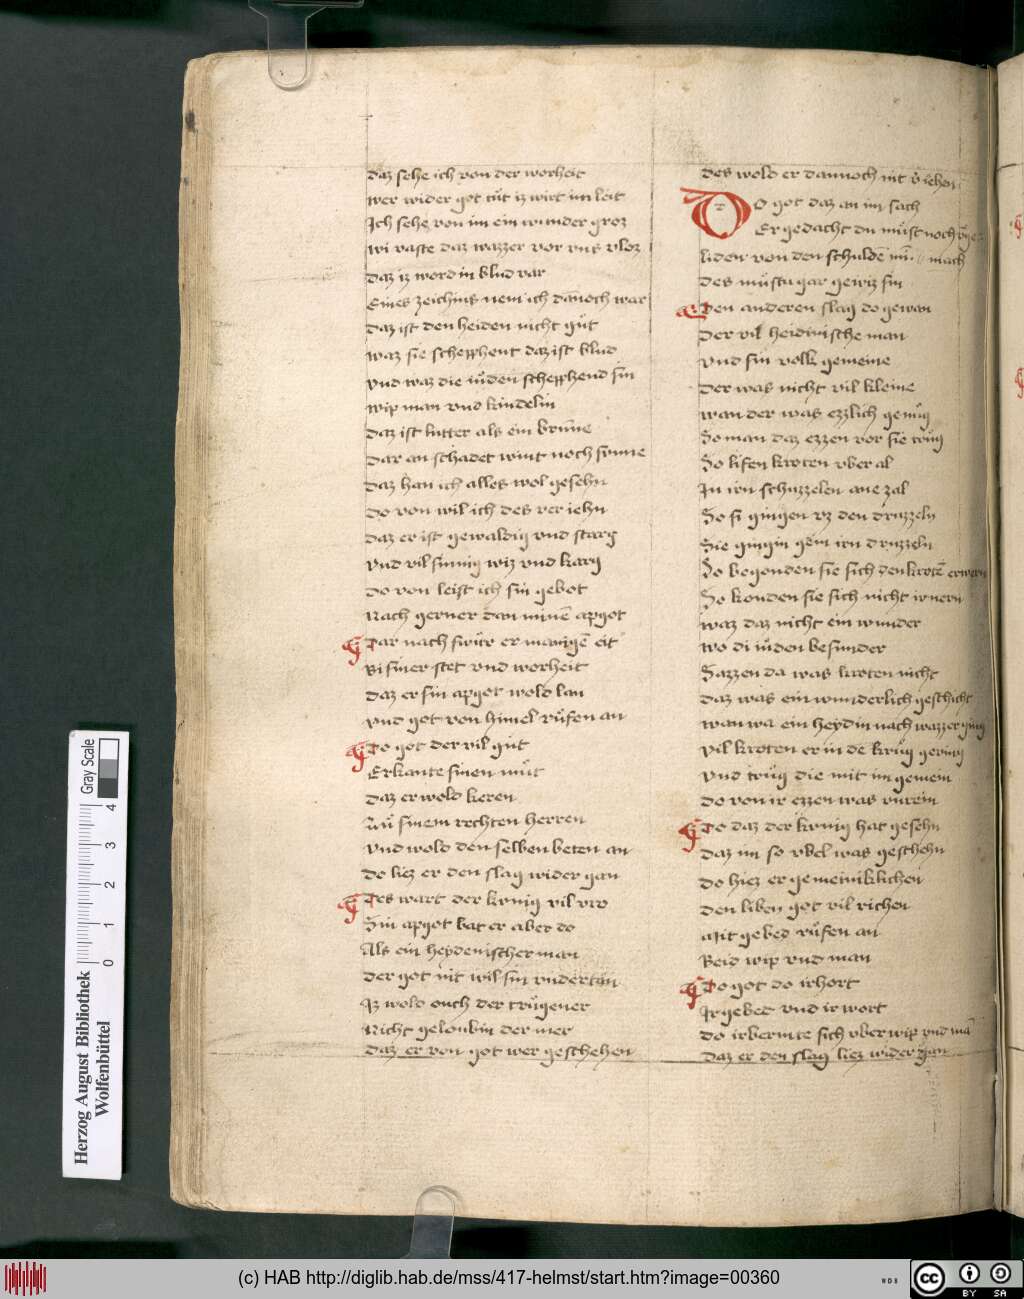 daz sehe ich von der worheit
wer wider got tut iz wirt im leit
Ich sehe von im ein wunder groz
wi vaste daz wazzer vor vns vloz
daz iz word in blud var
Eines zeichins nem ich dannoch war
daz ist den heiden nicht gut
waz sie schepphent daz ist blud
vnd waz die iuden schepphend sin
wip man vnd kindelin
daz ist lutter als ein brunne
dar an schadet wint noch sunne
daz han ich alles wol gesehn
do von wil ich des ver iehn
daz er ist gewaldig vnd starg
vnd vil sinnig wiz vnd karg
do von leist ich sin gebot
Nach gerner dan minē apgot
Dar nach swur er manigē eit
Bi siner stet vnd worheit
daz er sin apgot wold lan
vnd got von himel rufen an
Do got der vil gut
Erkante sinen mut
daz er wold keren
Zu sinem rechten herren
vnd wold den selben beten an
do liez er den slag wider gan
Des wart der kvnig vil vro
Sin apgot bat er aber do
Als ein heydenischer man
der got nit wil sin vndertan
Iz wold ouch der trugener
Nicht geloubin der mer
daz er von got wer geschehen
des wold er dannoch nit v̄iehen
DO got daz an im sach
Er gedacht du must noch
liden von den schuldē mach
des mustu gar gewiz sin
Den anderen slag do gewan
der vil heidinische man
vnd sin volk gemeine
der was nicht vil kleine
wan der was ezzlich genug
So man daz ezzen vor sie trug
So lifen kroten vber al
In irn schuzzelen ane zal
So si gingen vz den druzzeln
Sie gingin gein irn druzzeln
Do begonden sie sich den krotē erwern
So konden sie sich nicht irnern
waz daz nicht ein wunder
wo di iuden besunder
Sazzen da was kroten nicht
daz was ein wunderlich geschicht
wan wa ein heydin nach wazzer ging
vil kroten er in de krug gering
vnd trug die mit im gemein
do von ir ezzen was vnrein
Do daz der kvnig hat gesehn
daz im so vbel was geschehn
do hiez er gemeiniklichen
den liben got vil richen
Mit gebed rufen an
Beid wip vnd man
Do got do irhort
Ir gebed vnd ir wort
do irbermte sich vber wip vnd mā
daz er den slag liez wider gan
Herzog August Bibliothek
Wolfenbüttel
0 1 2 3 4
Gray Scale
(c) HAB http://diglib.hab.de/mss/417-helmst/start.htm?image=00360
WDB
cc BY SA